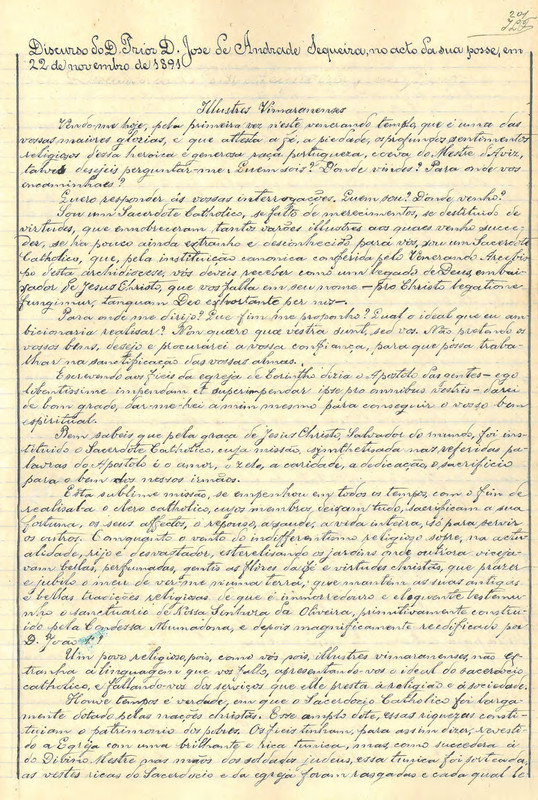 201
725
Discurso do D. Prior D. Jose de Andrade Sequeira, no acto da sua posse, em
22 de novembro de 1891
Illustres Vimaranenses
Vendo-me hoje, pela primeira vez n'este venerando templo, que é uma das
vossas maiores glorias, e que attesta a fé, a piedade, os profundos sentimentos
religiosos dessa heroica e generosa raça portugueza, coeva do Mestre d'Aviz,
talvez desejeis perguntar-me: Quem sois? D'onde vindes? Para onde vos
encaminhaes?
Quero responder ás vossas interrogações. Quem sou? D'onde venho?
Sou um Sacerdote Catholico, se falto de merecimentos, se destituido de
virtudes, que ennobreceram tantos varões illustres aos quaes venho succe-
der, se ha pouco ainda extranho e desconhecido para vós, sou um Sacerdote
Catholico, que, pela instituição canonica conferida pelo Venerando Arcebis-
po desta archidiocese, vós deveis receber como um legado de Deus, embai-
xador de Jesus Christo, que vos falla em seu nome - pro Christo legatione
fungimur, tanquam Deo exhortante per nos -
Para onde me dirijo? Que fim me proponho? Qual o ideal que eu am-
bicionaria realisar? Non quæro quæ vestra sunt, sed vos. Não pretendo os
vossos bens, desejo e procurarei a vossa confiança, para que possa traba-
lhar na sanctificação das vossas almas.
Escrevendo aos fieis da egreja de Corintho dizia o Apostolo das gentes - ego
libentissime impendam et superimpendar ipse pro animabus vestris - darei
de bom grado, dar-me-hei a mim mesmo para conseguir o vosso bem
espiritual.
Bem sabeis que pela graça de Jesus Christo, Salvador do mundo, foi ins-
tituido o Sacerdote Catholico, cuja missão, synthetisada nas referidas pa-
lavras do Apostolo é o amor, o zelo, a caridade, a dedicação, o sacrificio
para o bem dos nossos irmãos.
Esta sublime missão, se empenhou em todos os tempos, com o fim de
realisal-a o clero catholico, cujos membros deixam tudo, sacrificam a sua
fortuna, os seus affectos, o repouso, a saude, a vida inteira, só para servir
os outros. Comquanto o vento do indifferentismo religioso sopre, na actu-
alidade, rijo e desvastador, esterelisando os jardins onde outr'ora viceja-
vam bellas, perfumadas, gentis as flôres da fé e virtudes christãs, que prazer
e jubilo o meu de ver-me n'uma terra, que mantem as suas antigas
e bellas tradições religiosas de que é immorredoiro e eloquente testemu-
nho o sanctuario de Nossa Senhora da Oliveira, primitivamente construi-
do pela Condessa Mumadona, e depois magnificamente reedificado por
D. João 1.º
Um povo religioso, pois, como vós sois, illustres vimaranenses, não es-
tranha a linguagem que vos fallo, apresentando-vos o ideal do sacerdocio
catholico, e fallando-vos dos serviços que elle presta á religião e á sociedade.
Houve tempos é verdade, em que o Sacerdocio Catholico foi larga-
mente dotado pelas nações christãs. Esse amplo dote, essas riquezas consti-
tuiam o patrimonio dos pobres. Os fieis tinham, para assim dizer, revesti-
do a Egreja com uma brilhante e rica tunica, mas, como succedera á
do Divino Mestre nas mãos dos soldados judeus, essa tunica foi sorteada,
as vestes ricas do Sacerdocio e da egreja foram rasgadas e cada qual le